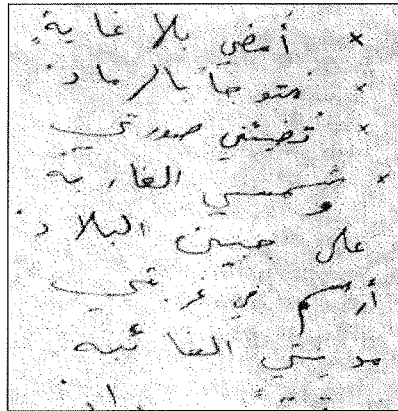 × أمضي بلا غاية
× متوجا بالرماد
× تضيئني صورتي
× و شمسي الغاربة
على جبين البلاد
أرسم في غرفتي
مدينتي الغائبة